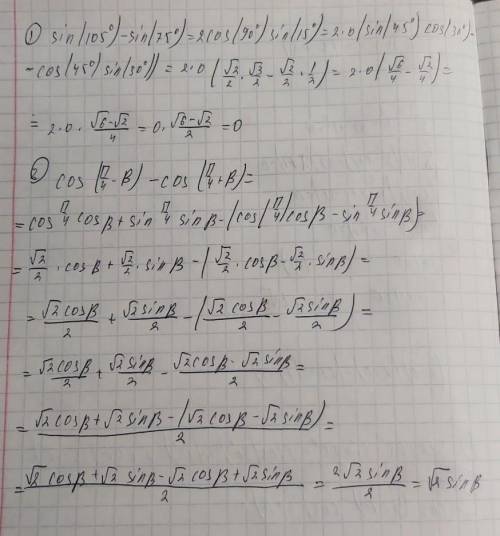 ① sin(105°)-sin(75°)=2cos(90°)sin(15°)=2·0(sin(45°)cos(30°)-
-cos(45°)sin(30°))=2·0(√2/2·√3/2-√2/2·1/2)=2·0(√6/4-√2/4)=
=2·0·(√6-√2)/4=0·(√6-√2)/2=0
② cos(π/4-β)-cos(π/4+β)=
=cos π/4 cosβ+sin π/4 sinβ-(cos(π/4)cosβ-sin π/4 sinβ)=
=√2/2·cosβ+√2/2·sinβ-(√2/2·cosβ-√2/2·sinβ)=
=√2cosβ/2+√2sinβ/2-(√2cosβ/2-√2sinβ/2)=
=√2cosβ/2+√2sinβ/2-(√2cosβ-√2sinβ)/2=
=(√2cosβ+√2sinβ-(√2cosβ-√2sinβ))/2=
=(√2cosβ+√2sinβ-√2cosβ+√2sinβ)/2=2√2sinβ/2=√2sinβ